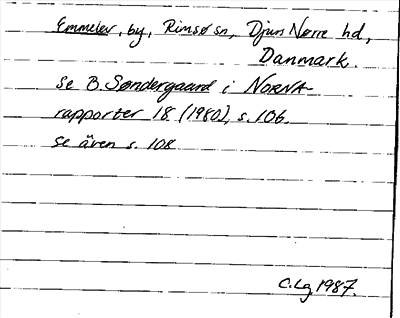 Emmelev, by, Rimsø sn, Djurs Nørre hd,
Danmark.
Se B. Søndergaard i NORNA-
rapporter 18 (1980), s. 106.
Se även s. 108
C.Lg. 1987.